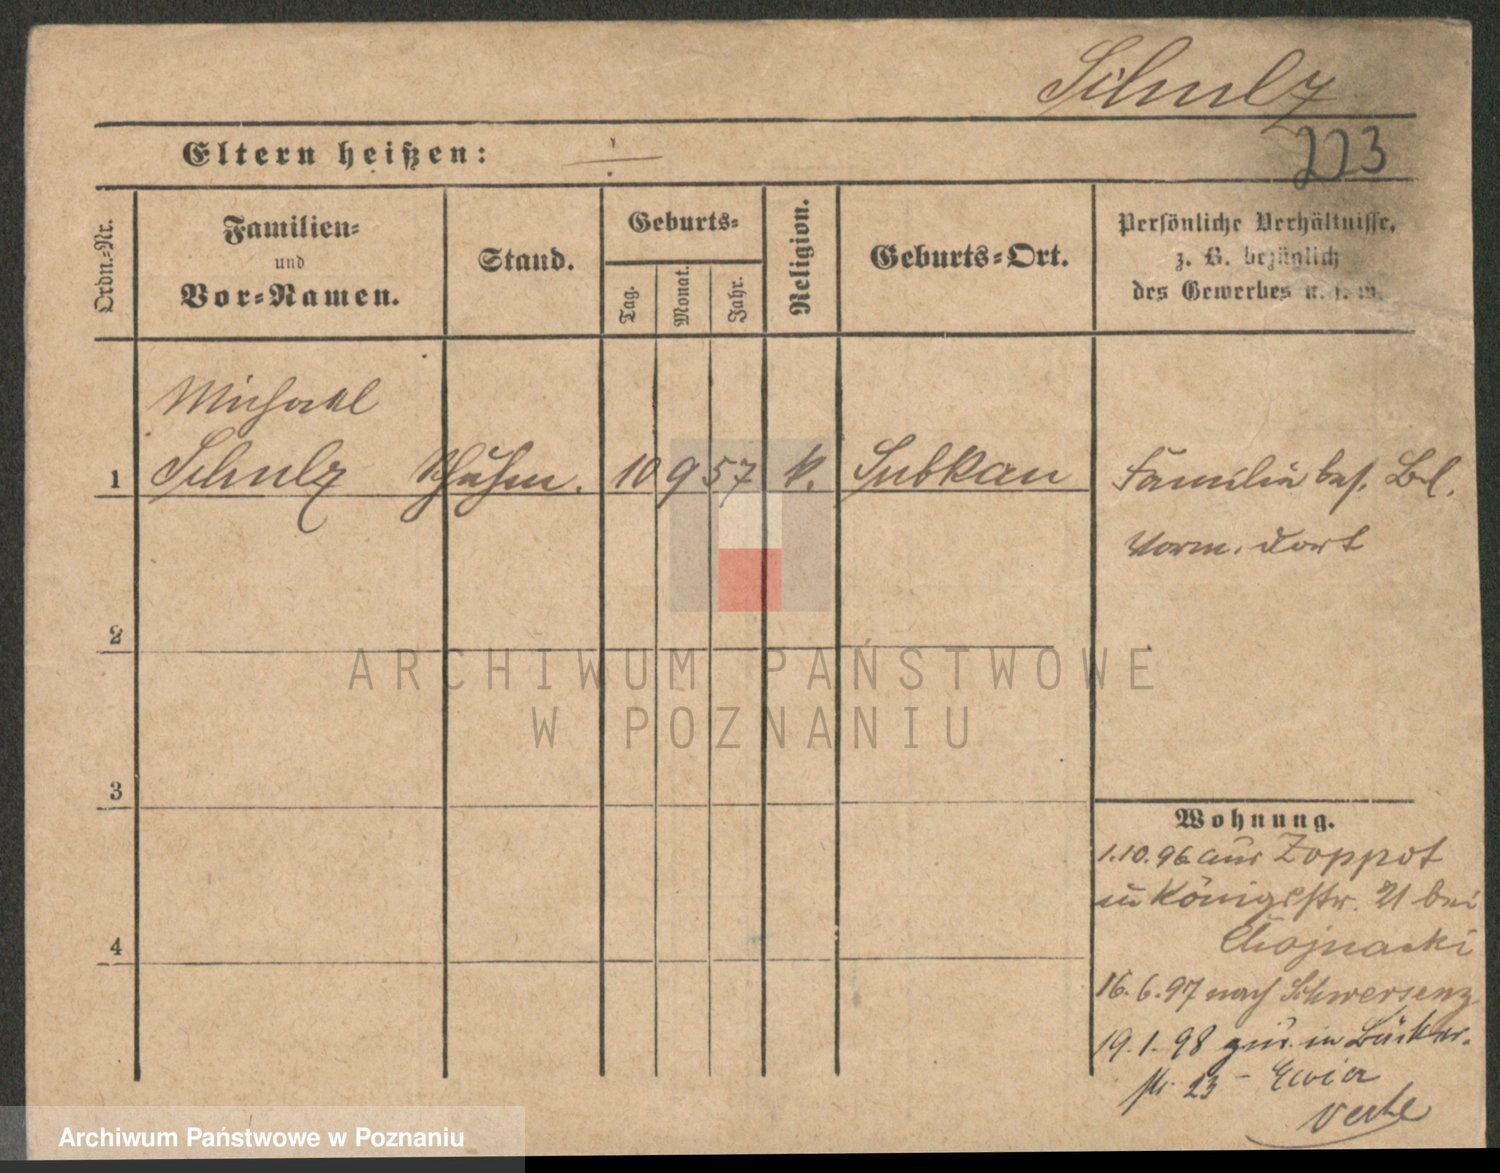 Schulz
Eltern heißen:
223
Ordn.-Nr.
Familien-
und
Vor-Namen.
Stand.
Geburts-
Tag.
Monat.
Jahr.
Religion.
Geburts-Ort.
Persönliche Verhältnisse,
z. B. bezüglich
des Gewerbes u. s. w.
Michael
1 Schulz 10 9 57 k. Subkau
Familie
dort
2
3
4
ARCHIWUM PAŃSTWOWE
W POZNANIU
Wohnung.
1.10.96 aus Zoppot
in Königsstr. 21 bei
Chojnacki
16.6.97 nach Schwersenz
19.1.98 zur. in Bäcker-
str. 23 -
Archiwum Państwowe w Poznaniu